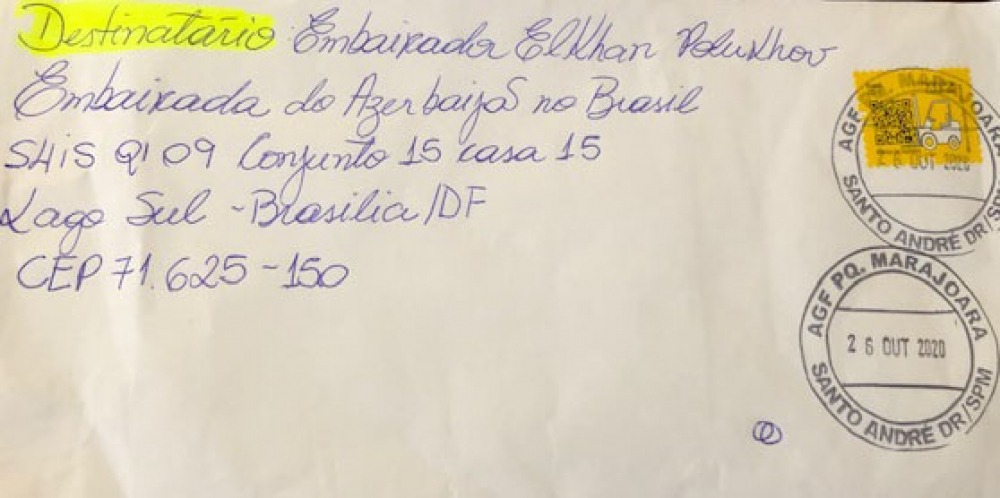 Destinatário: Embaixador Elkhan Polukhov
Embaixada do Azerbaijão no Brasil
SHIS QI 09 Conjunto 15 casa 15
Lago Sul - Brasilia/DF
CEP 71.625-150
AGF PQ. MARAJOARA
26 OUT 2020
SANTO ANDRÉ DR/SPM
AGF PQ. MARAJOARA
26 OUT 2020
SANTO ANDRÉ DR/SPM